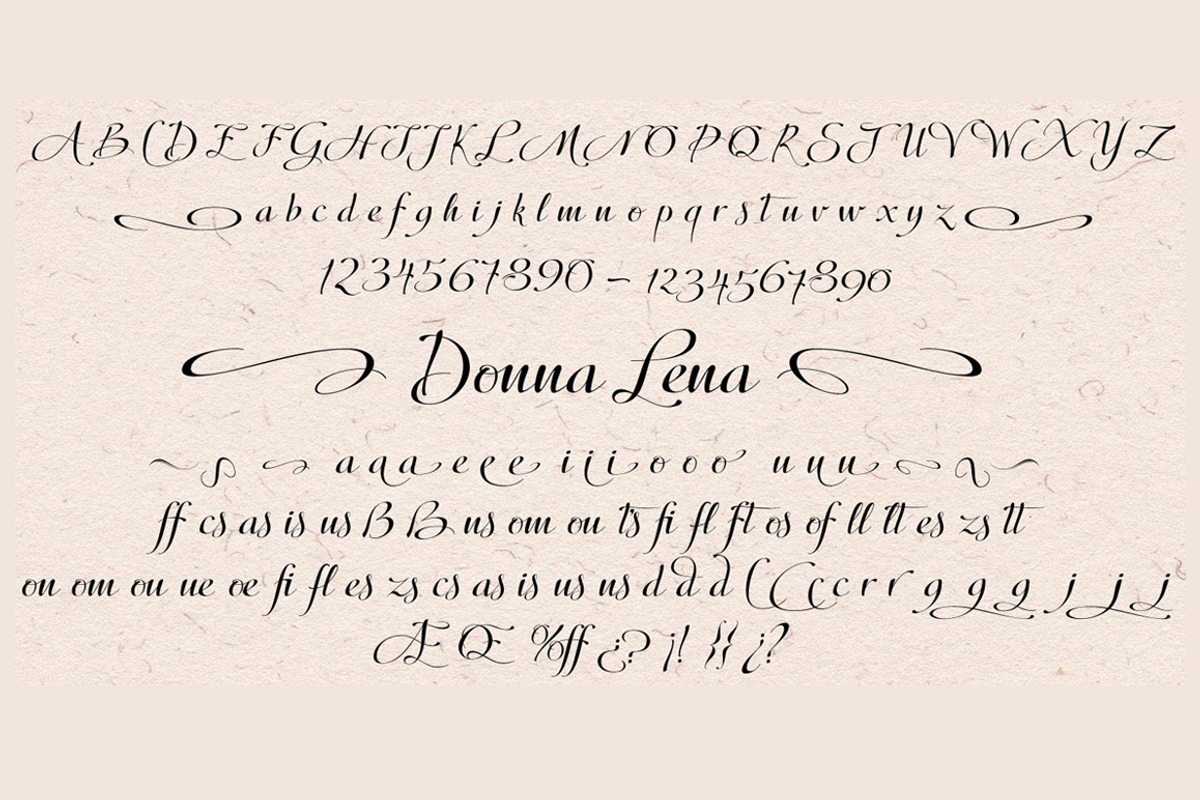 A B C D E F G H I J K L M N O P Q R S T U V W X Y Z
a b c d e f g h i j k l m n o p q r s t u v w x y z
1234567890 – 1234567890
Donna Lena
a a a e e e i i i o o o u u u
ff cs as is us B B ns om ou ts fi fl ft os of ll lt es zs tt
on om ou ue oe fi fl es zs cs as is us ns d d d C C c c r r g g g j j j
Æ Œ % ff ¿? ¡! }{ ¿?